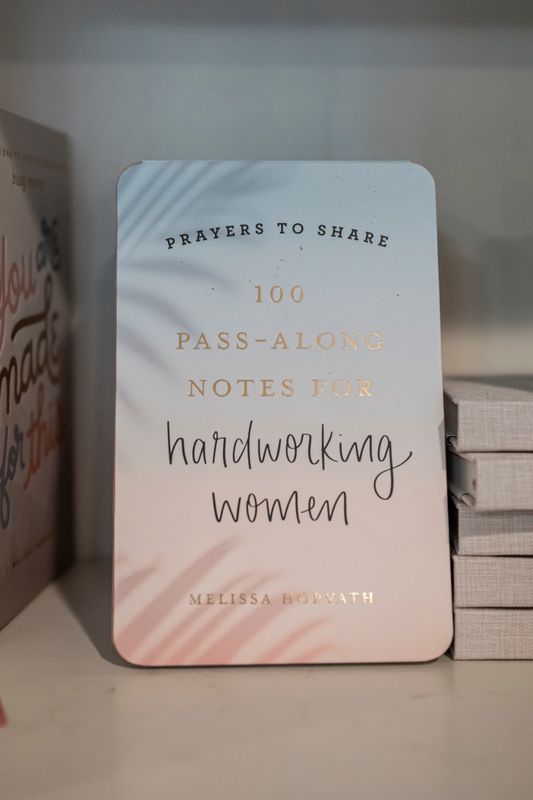 PRAYERS TO SHARE
100
PASS-ALONG
NOTES FOR
hardworking
women
MELISSA HORVATH
you are
made
for this